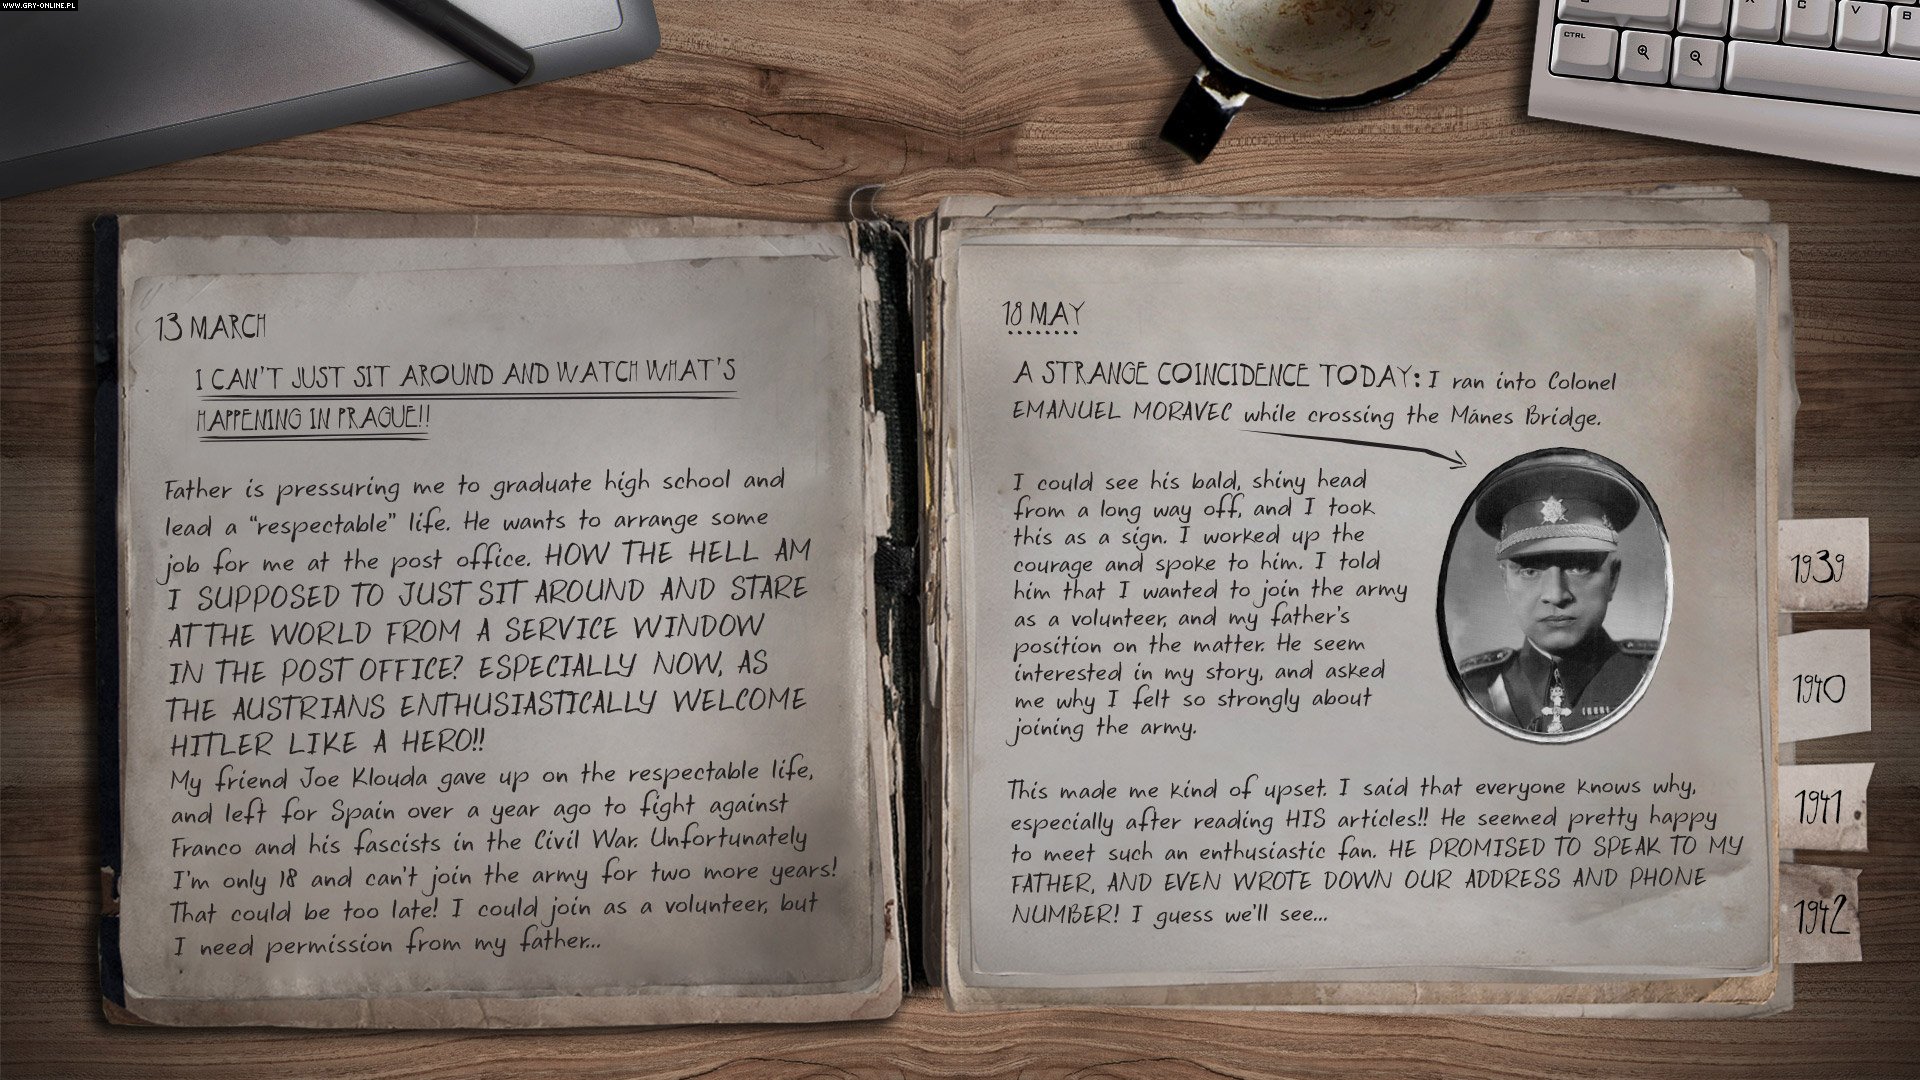 WWW.GRY-ONLINE.PL
CTRL
X
C
V
B
13 MARCH
I CAN'T JUST SIT AROUND AND WATCH WHAT'S
HAPPENING IN PRAGUE!!
Father is pressuring me to graduate high school and
lead a "respectable" life. He wants to arrange some
job for me at the post office. HOW THE HELL AM
I SUPPOSED TO JUST SIT AROUND AND STARE
AT THE WORLD FROM A SERVICE WINDOW
IN THE POST OFFICE? ESPECIALLY NOW, AS
THE AUSTRIANS ENTHUSIASTICALLY WELCOME
HITLER LIKE A HERO!!
My friend Joe Klouda gave up on the respectable life,
and left for Spain over a year ago to fight against
Franco and his fascists in the Civil War. Unfortunately
I'm only 18 and can't join the army for two more years!
That could be too late! I could join as a volunteer, but
I need permission from my father...
18 MAY
A STRANGE COINCIDENCE TODAY: I ran into Colonel
EMANUEL MORAVEC while crossing the Mánes Bridge.
I could see his bald, shiny head
from a long way off, and I took
this as a sign. I worked up the
courage and spoke to him. I told
him that I wanted to join the army
as a volunteer, and my father's
position on the matter. He seem
interested in my story, and asked
me why I felt so strongly about
joining the army.
This made me kind of upset. I said that everyone knows why,
especially after reading HIS articles!! He seemed pretty happy
to meet such an enthusiastic fan. HE PROMISED TO SPEAK TO MY
FATHER, AND EVEN WROTE DOWN OUR ADDRESS AND PHONE
NUMBER! I guess we'll see...
1939
1940
1941
1942